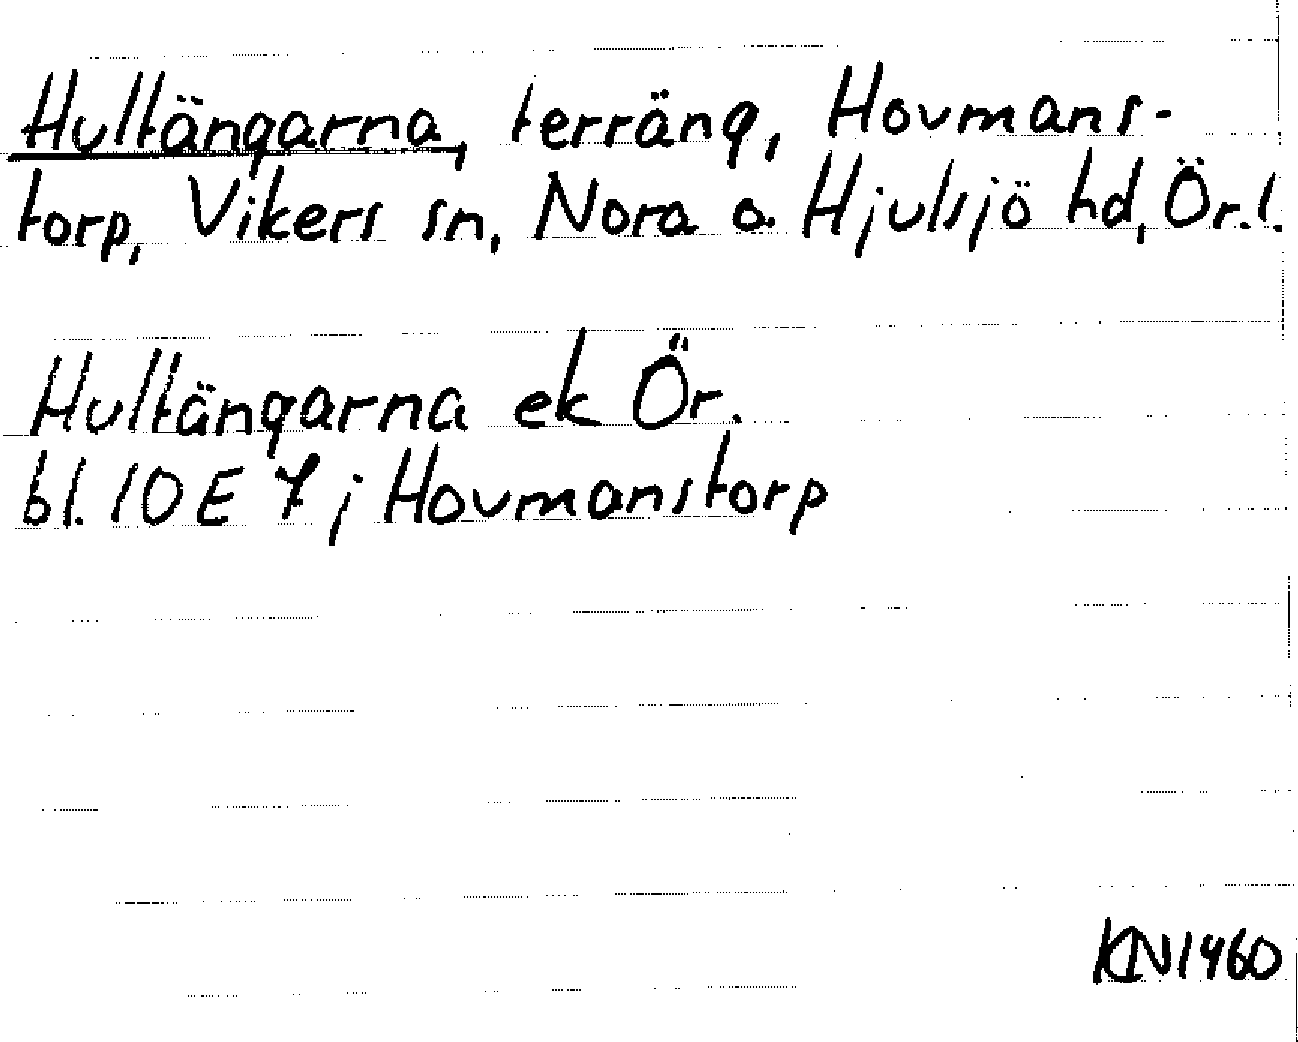 Hultängarna, terräng, Hovmans-
torp, Vikers sn, Nora o. Hjulsjö hd, Ör.l.
Hultängarna ek Ör.
bl. 10E 7 j Hovmanstorp
KN1460